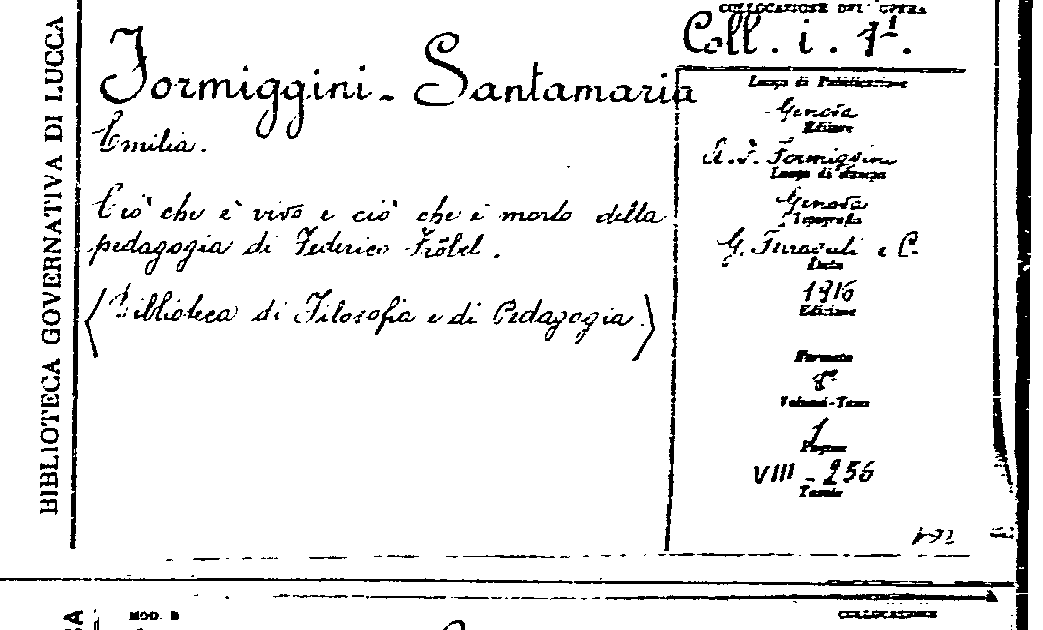 BIBLIOTECA GOVERNATIVA DI LUCCA
COLLOCAZIONE DELL'OPERA
Coll. i. 1ª.
Formiggini - Santamaria
Emilia.
Ciò che è vivo e ciò che è morto della
pedagogia di Federico Fröbel.
(Biblioteca di Filosofia e di Pedagogia.)
Luogo di Pubblicazione
Genova
Editore
A. F. Formiggini
Luogo di stampa
Genova
Tipografia
G. e C.
Data
1916
Edizione
Formato
8º
Volumi-Tomi
1
Pagine
VIII - 256
Tavole
MOD. B
COLLOCAZIONE